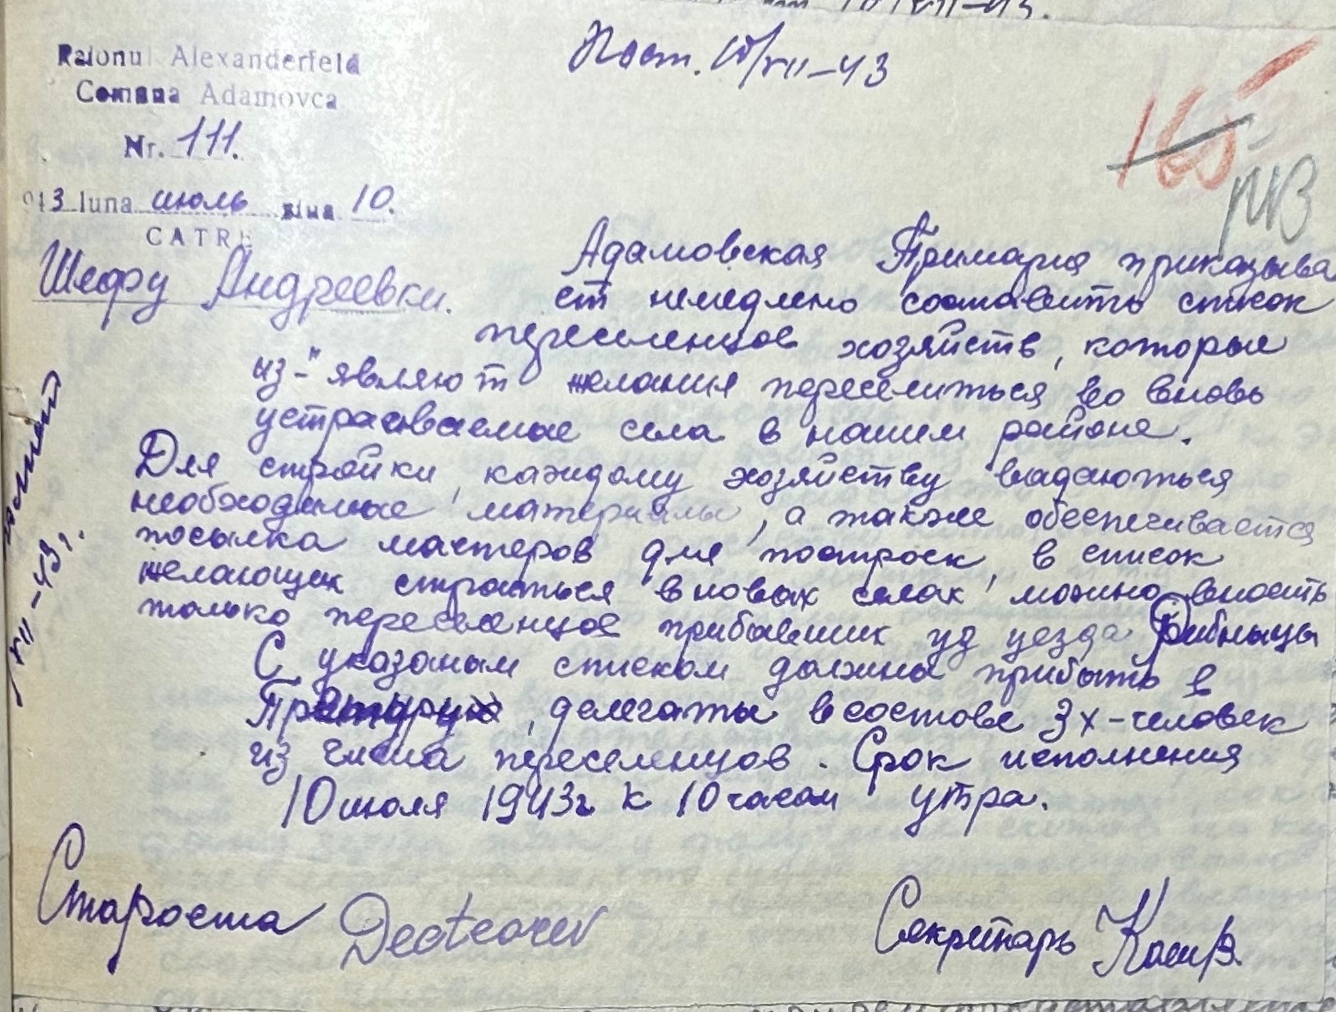 Пост. 10/VII-43
Raionul Alexanderfeld
Comuna Adamovca
Nr. 111.
943 luna июль ziua 10.
CATRE
165
Шефу Андреевки.
Адамовская Примария приказыва
ет немедлено составить список
переселенцов хозяйств, которые
из-"являют желания переселиться во вновь
устраеваемые села в нашем районе.
Для стройки каждому хозяйству выдаються
необходимые материалы, а также обеспечивается
посылка мастеров для построек, в список
желающих строиться в новых селах можно вносить
только переселенцов прибывших уз уезда Рибницы
С указаным списком должна прибыть в
делегаты в составе 3х-человек
из числа переселенцов. Срок исполнения
10 июля 1943г к 10 часам утра.
VII-43г.
Староста
Секретарь